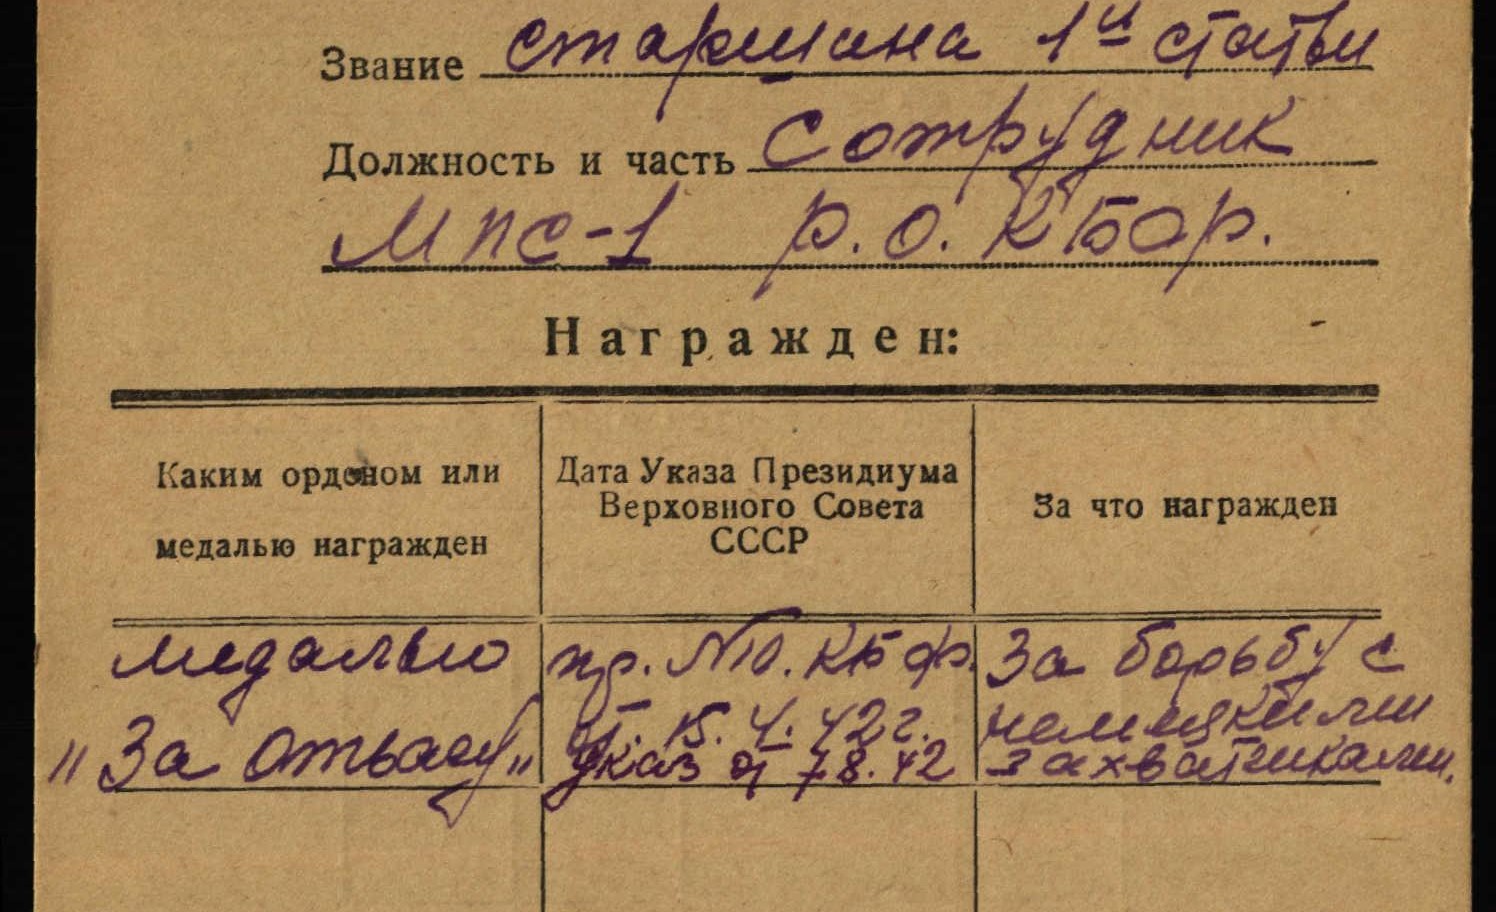 Звание старшина 1й статьи
Должность и часть сотрудник
МПС-1 р.о. КБФ
Награжден:
Каким орденом или
медалью награжден
Дата Указа Президиума
Верховного Совета
СССР
За что награжден
медалью
"За отвагу"
пр. КБФ.
от 42 г.
Указ от 7.8.42
За борьбу с
немецкими
захватчиками.